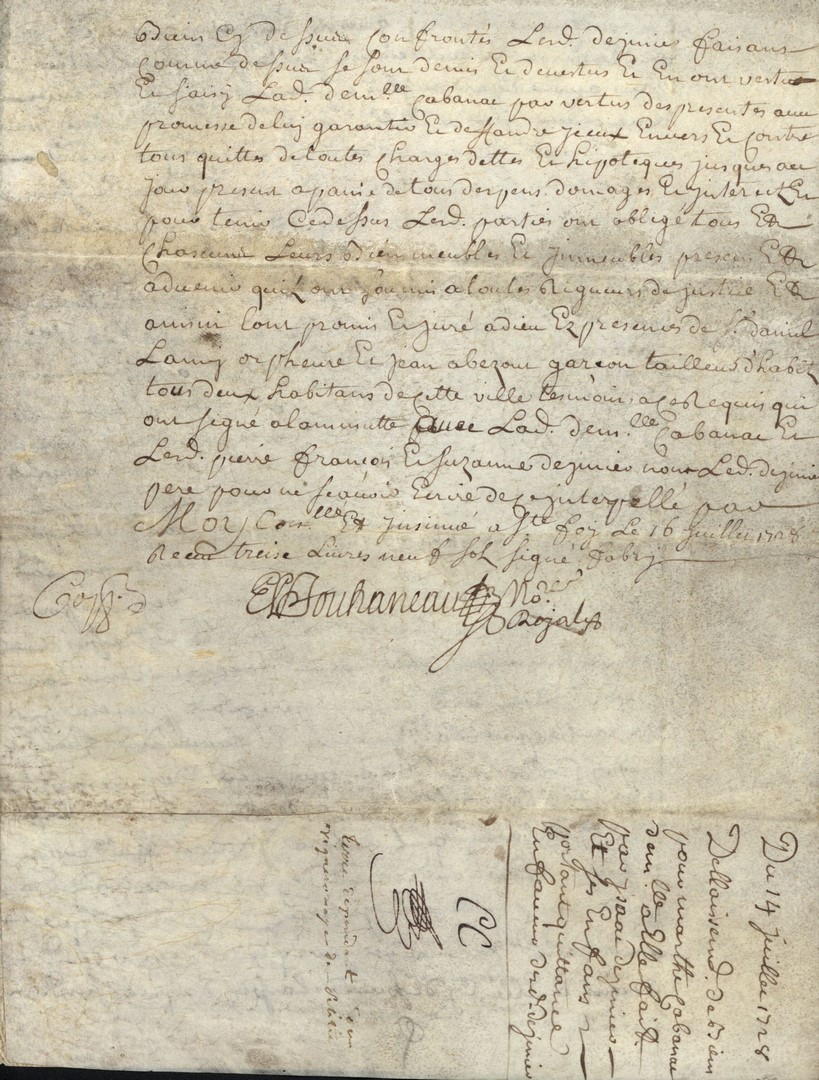 biens cy dessus confrontés Lesd. dejunies faisans
comme dessus se sont demis Et devestus Et En ont vestue
Et saisy Lad. dem.lle Cabanac par vertus des presentes avec
promesse de luy garantir Et deffandre jceux Envers Et Contre
tous quittes de toutes Charges dettes Et hipoteques jusques au
jour present a paine de tous despens domages Et jnterest Et
pour tenir Cedessus Lesd. parties ont obligé tous Et
Chascune Leurs biens meubles Et jmmeubles presens Et
advenir quil ont soumis a toutes Rigueurs de justice Et
ainsin l'ont promis Et juré a dieu Ez presences de Sr daniel
Lamy orpheure Et jean abezout garcon tailleur d'habit
tous deux habitans de cette ville tesmoins a ce Requis qui
ont signé a la minutte avec Lad. dem.lle Cabanac Et
Lesd. pierre françois Et suzanne dejunies non Led. dejunies
pere pour ne scavoir Ecrire de ce jnterpellé par
Moy Con.lle Et jnsinué a Ste foy Le 16 juillet 1728
Receu treise Livres neuf sol signé fabry
Jouhaneau No.re
Royal
Du 14 juillet 1728
Dellaissem.t de biens
pour marthe Cabanac
dem.lle a Elle fait
par isaac dejunies
Et ses Enfans
portant quittance
En faveur dud. dejunies
CC